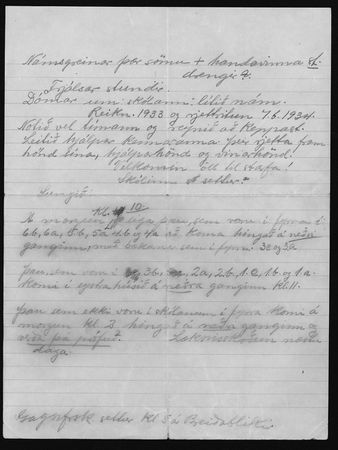 Námsgreinar þær sömu + handavinna
drengja.
Frjálsar stundir.
Dómar um skólann: lítið nám.
Reikn. 1933 og rjettritun 7.6. 1934.
Notið vel tímann og reynið að keppast.
Leitið hjálpar kennaranna þeir rjetta fram
hönd sína, hjálparhönd og vinarhönd.
Velkomin öll til starfa!
Skólinn er settur."
Sungið.
Kl. 10
Á morgun þau, sem voru í fyrra í
6b, 6a, 5b, 5a 4b og 4a að koma hingað á neðra
ganginn, með bækur sem í fyrra. 3c og 3a
Þau, sem voru í 3b, 2a, 2b, 1c, 1b og 1a
komi í efra húsið á neðra ganginn kl. 11.
Þau sem ekki voru í skólanum í fyrra komi á
morgun kl. 3 hingað á neðri ganginn og
verða þá prófuð. Læknisskoðun næstu
daga.
Gagnfrsk settur kl 5 á Breiðabliki